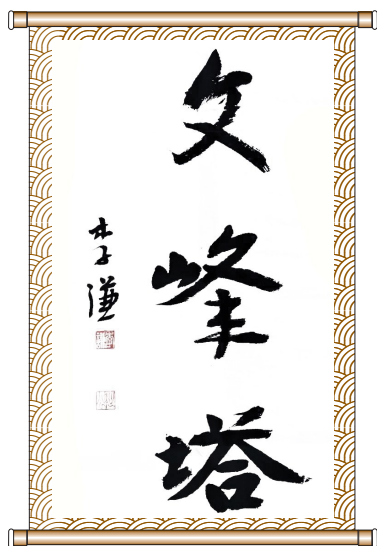 文峰塔
李谦